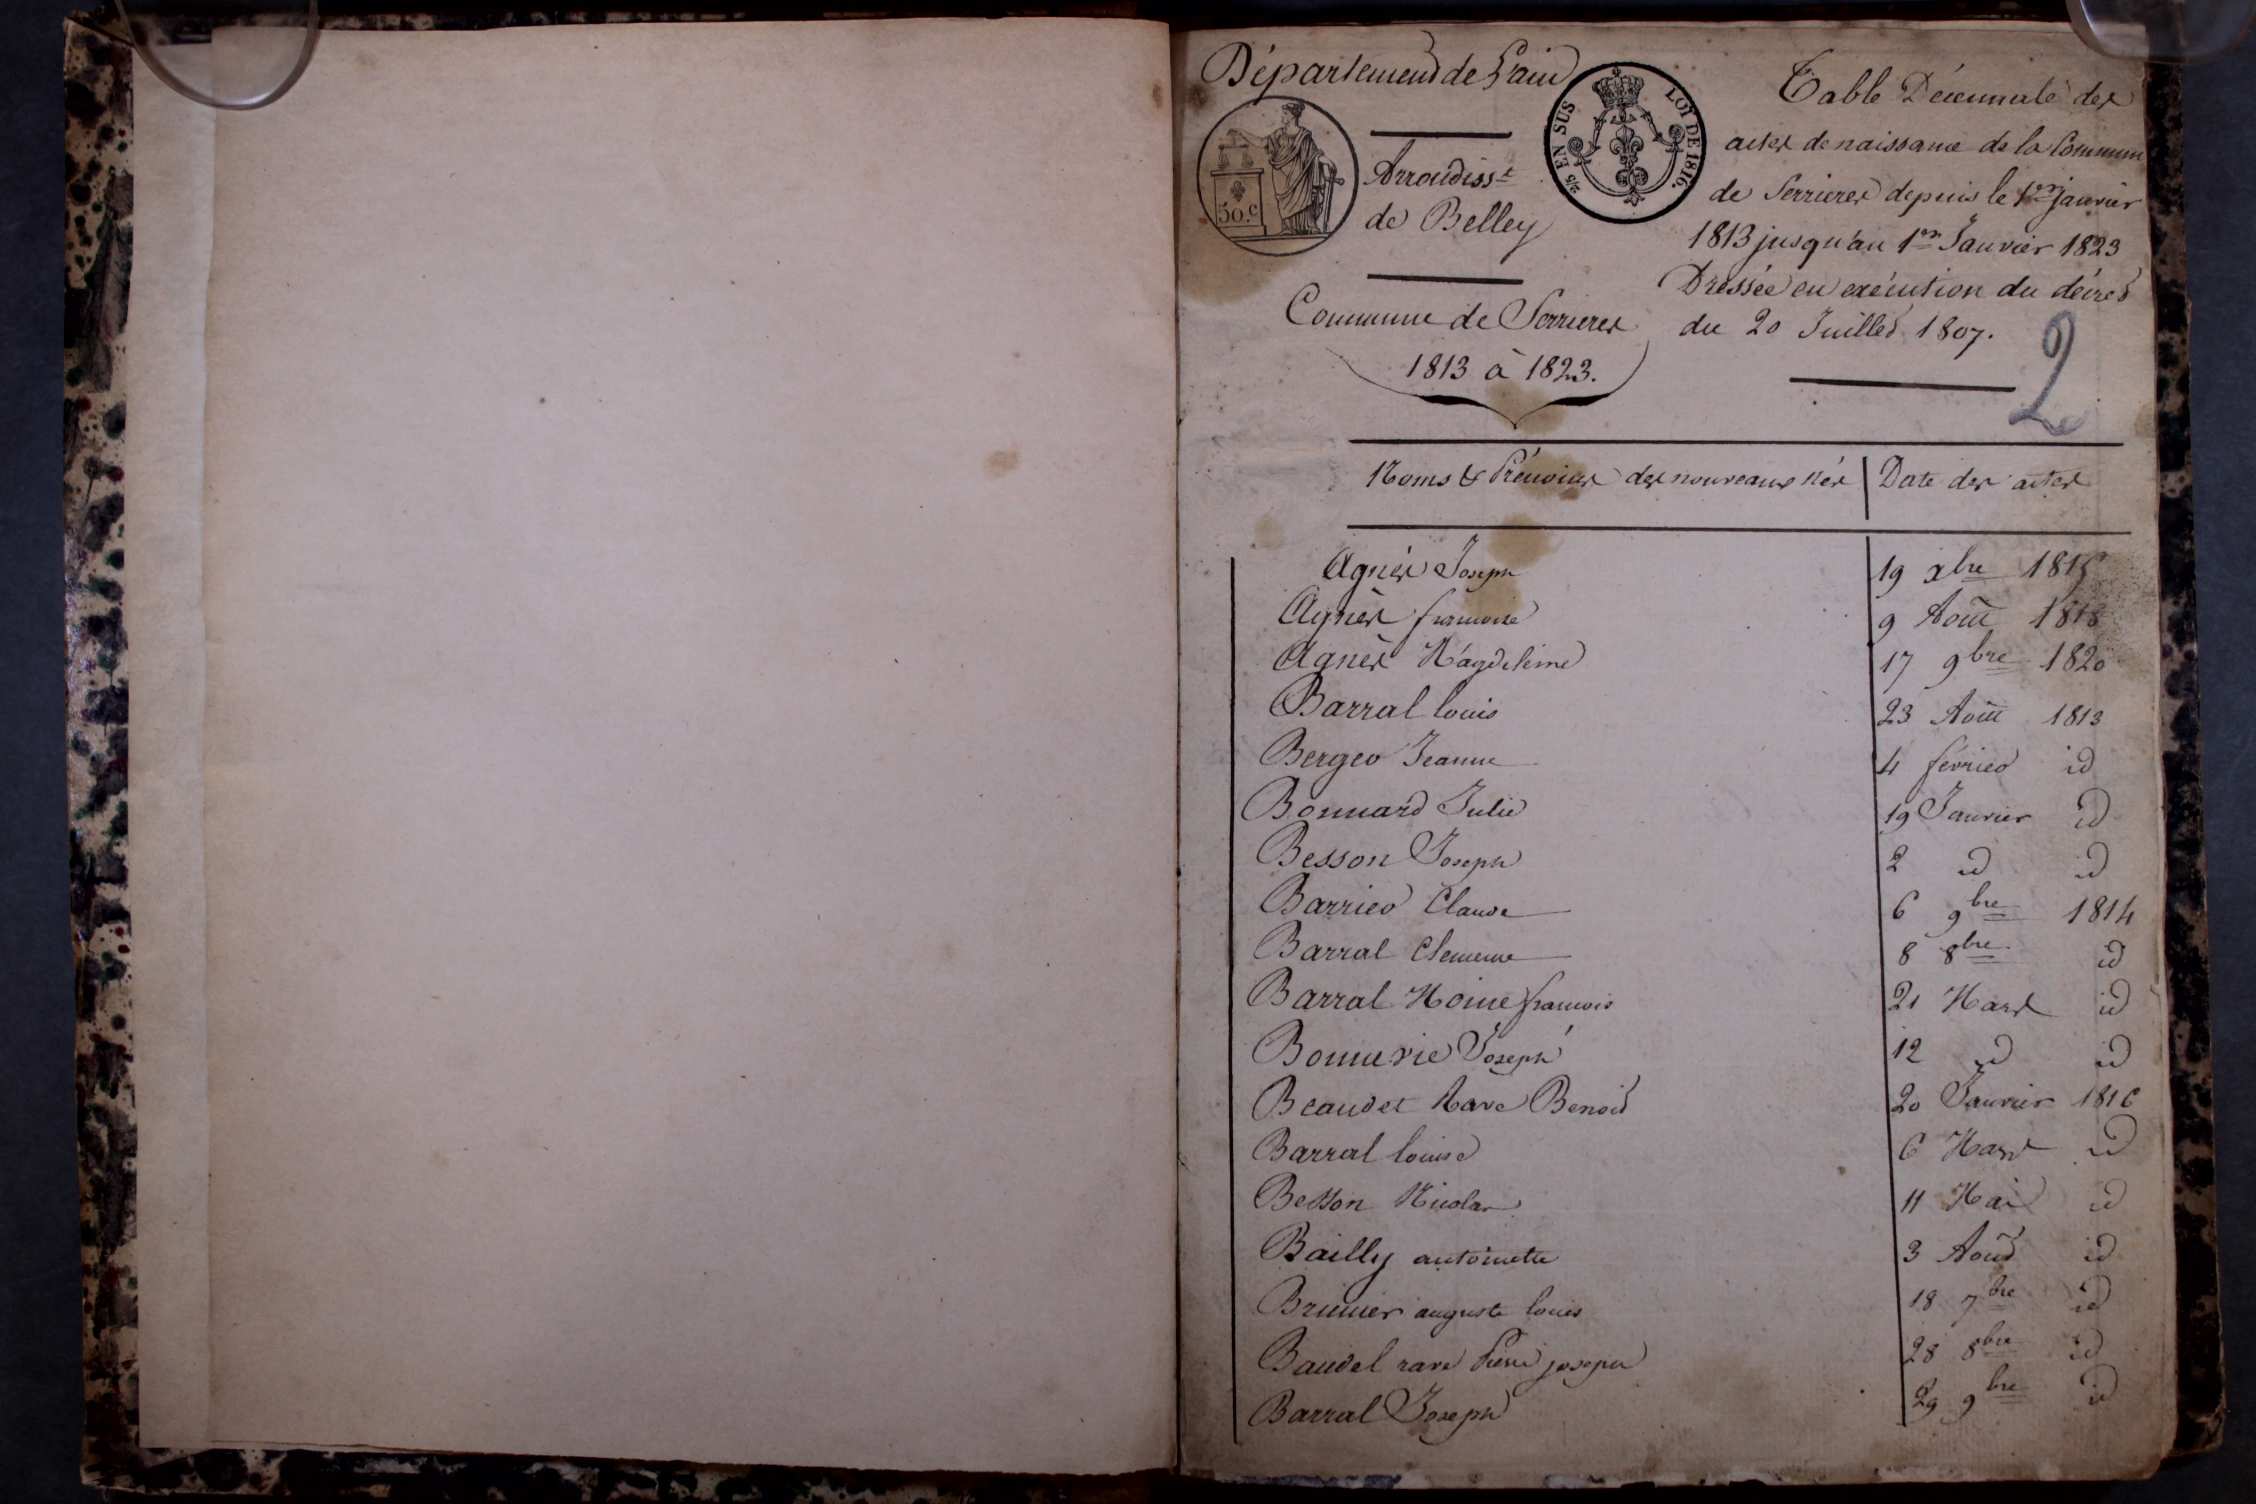 Département de l'ain
50.c
Arrondisst
de Belley
2/5 EN SUS
LOI DE 1816.
Commune de Serrieres
1813 à 1823.
Table Décennale des
actes de naissance de la Commune
de Serrieres depuis le 1er janvier
1813 jusqu'au 1er Janvier 1823
Dressée en exécution du décret
du 20 Juillet 1807.
2
Noms & Prénoms des nouveaux nés | Date des actes
Agnès Joseph 19 xbre 1815
Agnès francoise 9 Aout 1818
Agnès Magdeleine 17 9bre 1820
Barral louis 23 Aout 1813
Berger Jeanne 4 février id
Bonnard Julie 19 Janvier id
Besson Joseph 2 id id
Barrier Claude 6 9bre 1814
Barral Clemence 8 8bre id
Barral Moine francois 21 Mars id
Bonnerie Joseph 12 id id
Beaudet Benoit 20 Janvier 1816
Barral louise 6 Mars id
Besson Nicolas 11 Mai id
Bailly antoinette 3 Aout id
Brunier auguste louis 18 7bre id
Baudet rave Pierre joseph 28 8bre id
Barral Joseph 29 9bre id